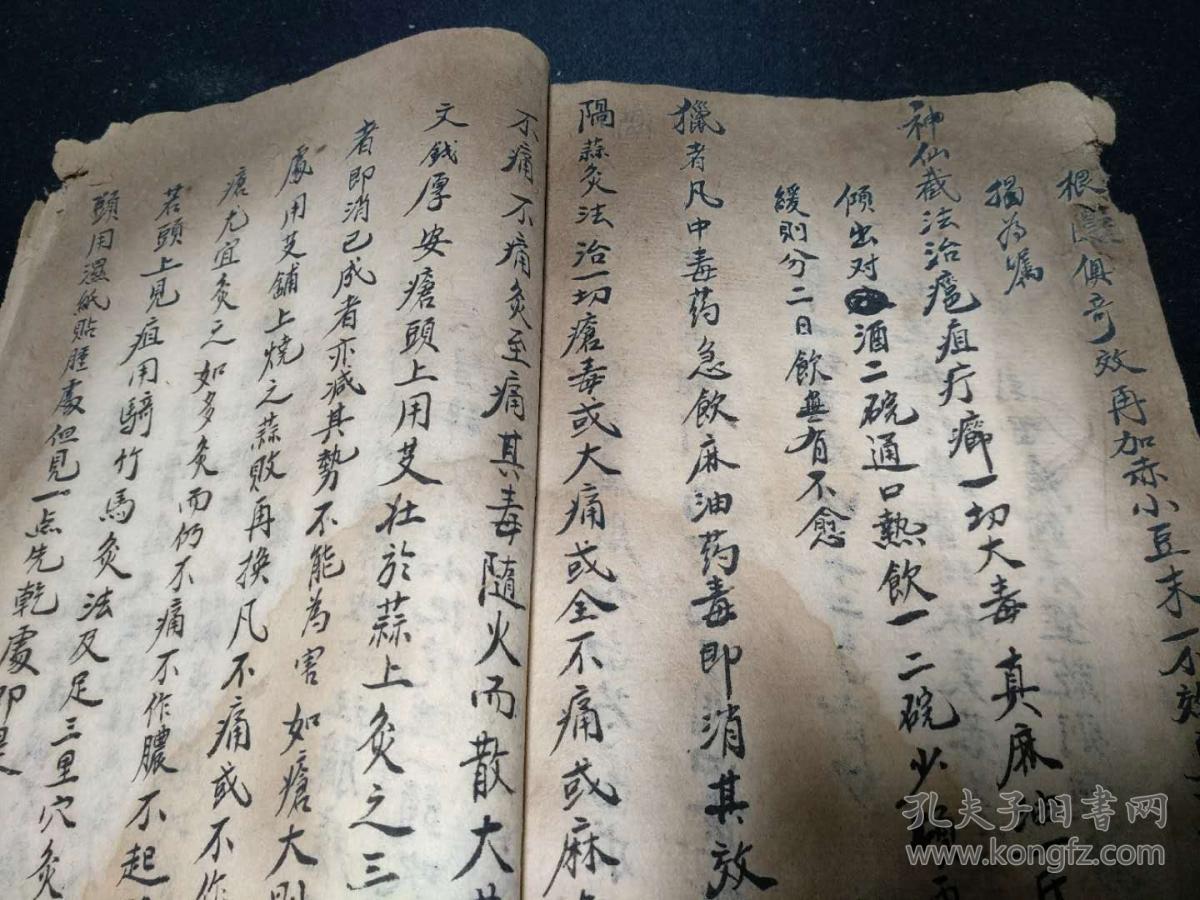 根俱奇效再加赤小豆末一不效
獨为嘱
神仙截法治癰疽疔癤一切大毒真麻油一斤
傾出对酒二碗通口熱飲一二碗少
緩則分二日飲無有不愈
獵者凡中毒药急飲麻油药毒即消其效
隔蒜灸法治一切瘡毒或大痛或全不痛或麻
不痛不痛灸至痛其毒隨火而散大
文钱厚安瘡頭上用艾壮於蒜上灸之三
者即消已成者亦减其勢不能為害如瘡大則
處用艾鋪上烧之蒜败再换凡不痛或不作
瘡尤宜灸之如多灸而仍不痛不作膿不起
若頭上见疽用騎竹馬灸法及足三里穴灸
頭用濕紙贴腫處但见一点先乾處即是
孔夫子旧书网
www.kongfz.com